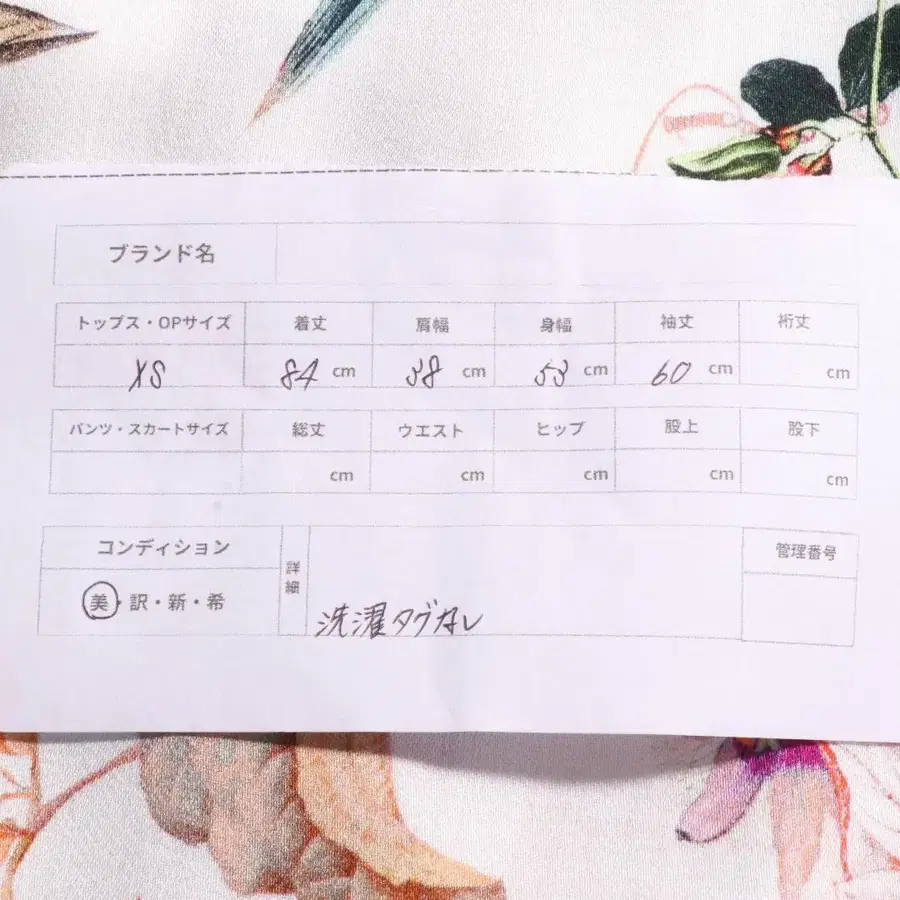 ブランド名
トップス・OPサイズ 着丈 肩幅 身幅 袖丈 裄丈
XS 84 cm 38 cm 53 cm 60 cm cm
パンツ・スカートサイズ 総丈 ウエスト ヒップ 股上 股下
cm cm cm cm cm
コンディション 詳細 管理番号
美・訳・新・希 洗濯タグなし